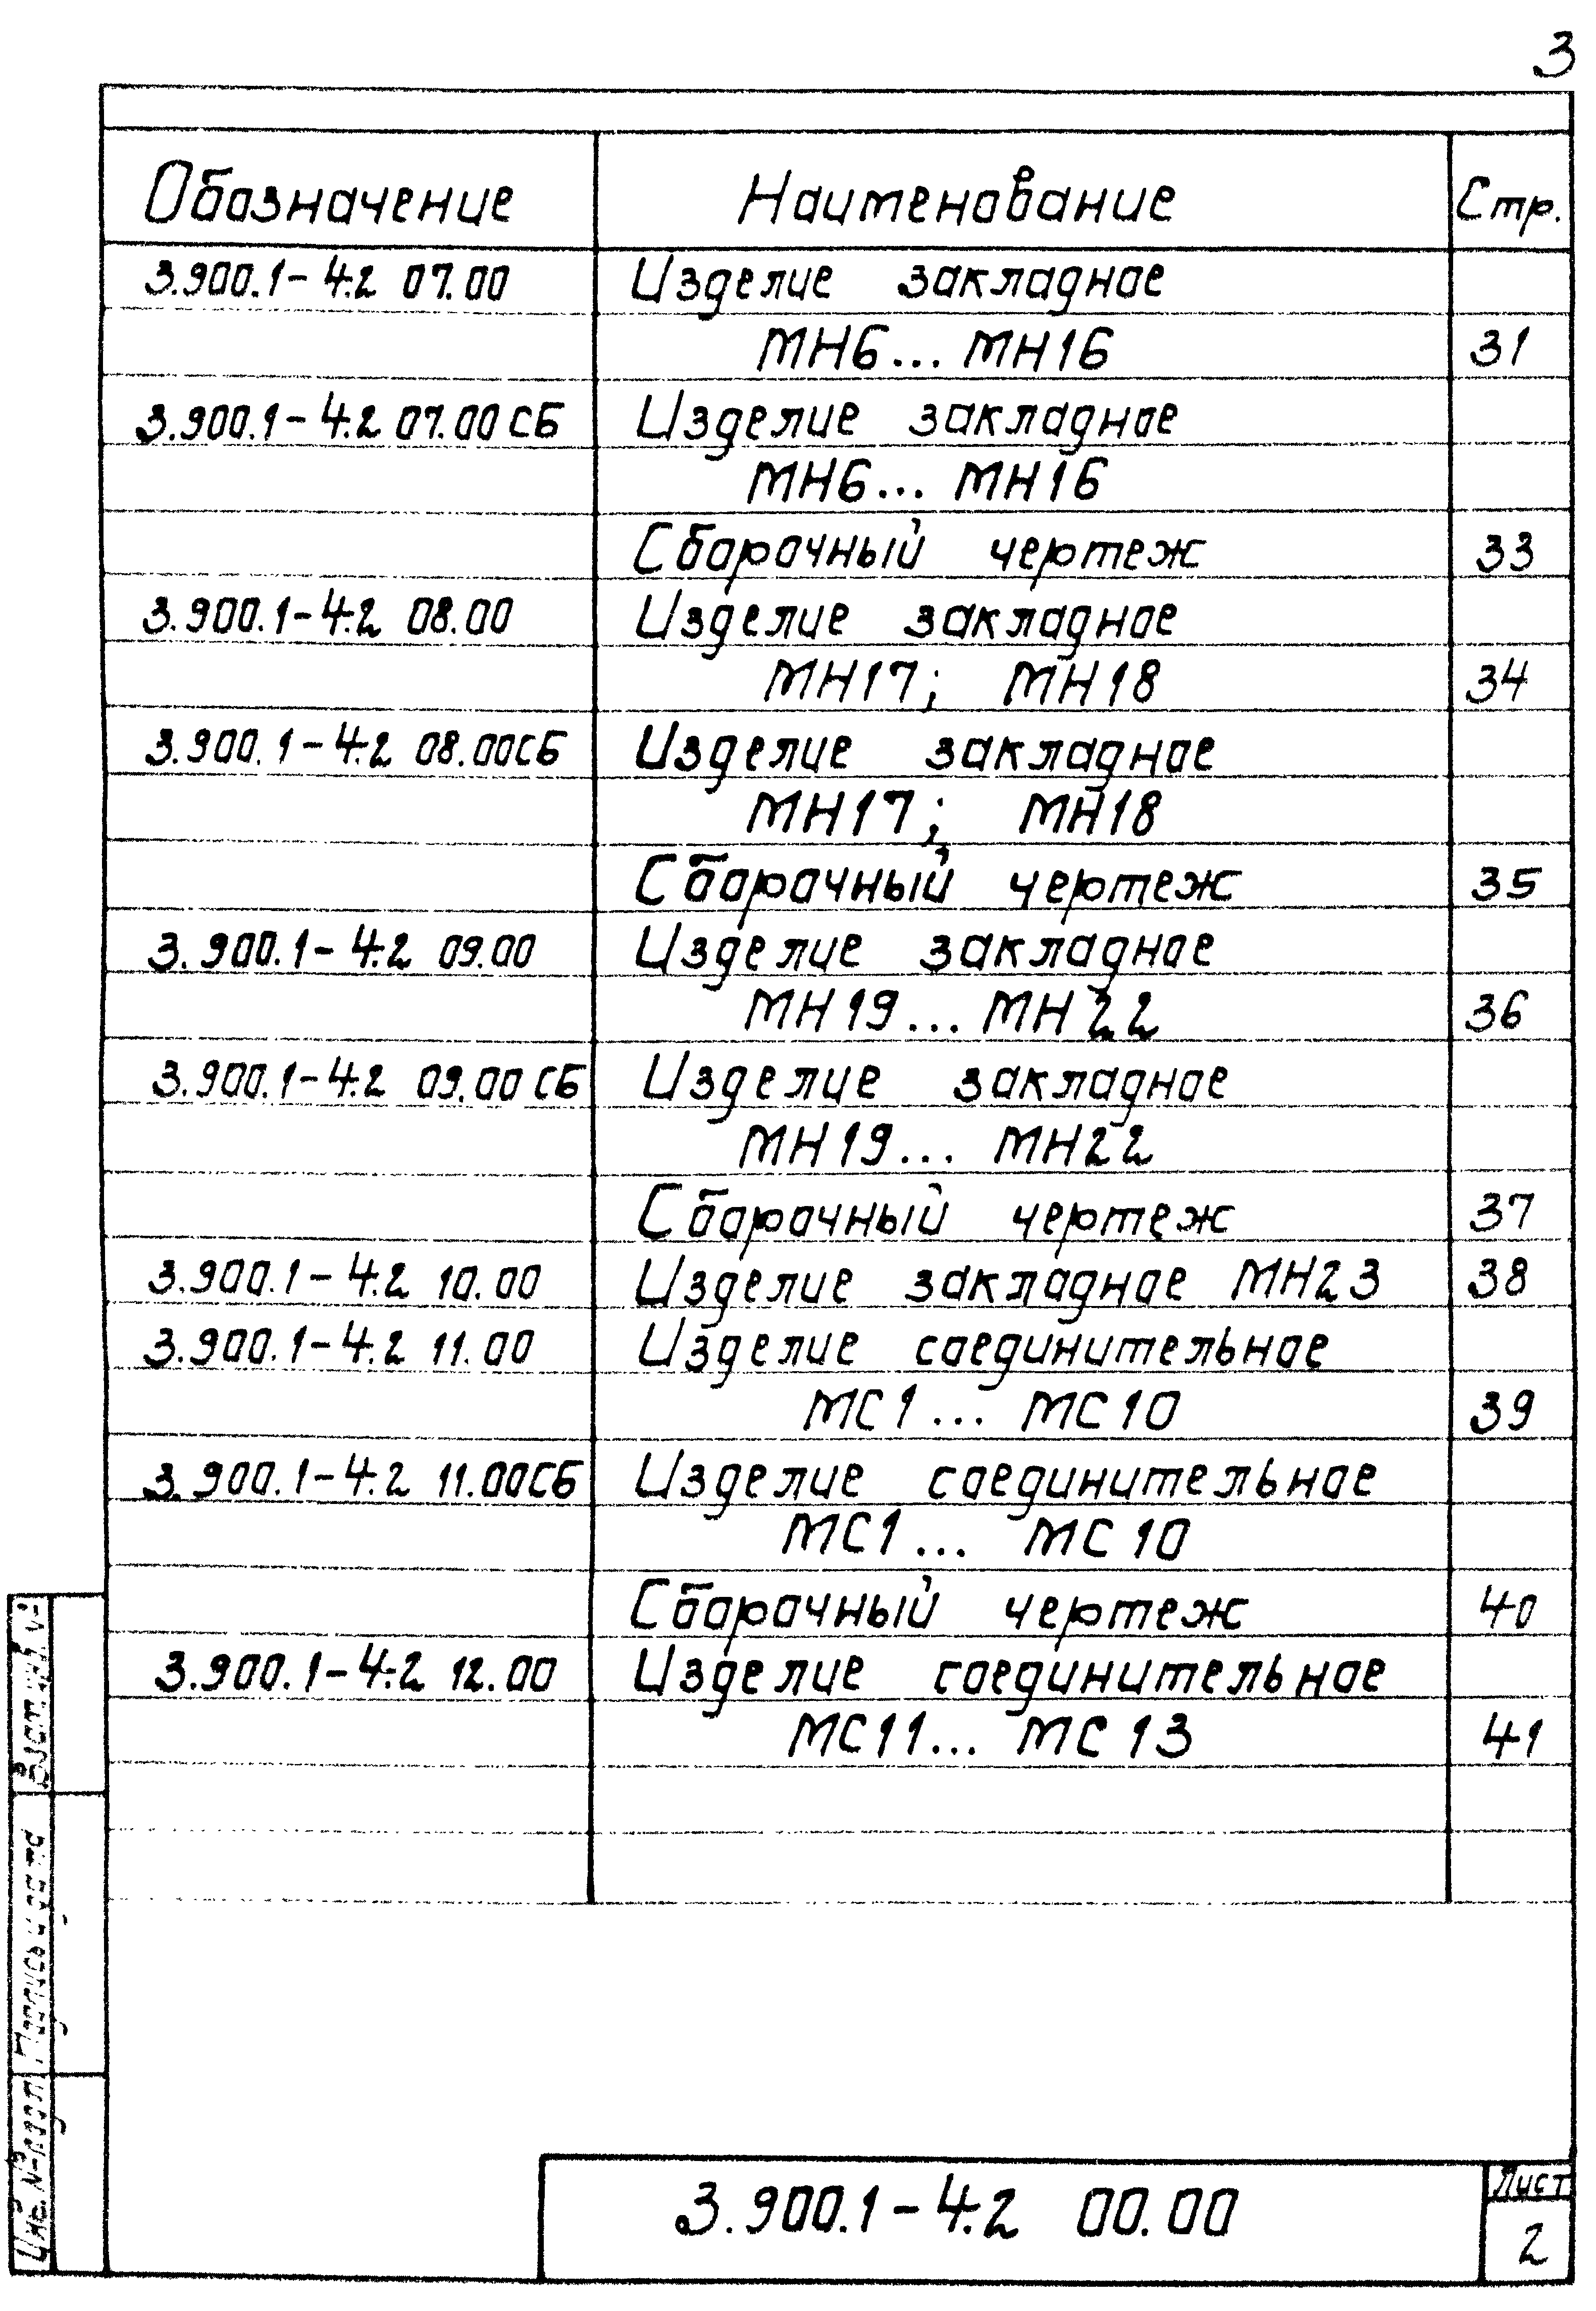 3
Обозначение Наименование Стр.
3.900.1-4.2 07.00 Изделие закладное
МН6... МН16 31
3.900.1-4.2 07.00 СБ Изделие закладное
МН6... МН16
Сборочный чертеж 33
3.900.1-4.2 08.00 Изделие закладное
МН17; МН18 34
3.900.1-4.2 08.00СБ Изделие закладное
МН17; МН18
Сборочный чертеж 35
3.900.1-4.2 09.00 Изделие закладное
МН19... МН22 36
3.900.1-4.2 09.00 СБ Изделие закладное
МН19... МН22
Сборочный чертеж 37
3.900.1-4.2 10.00 Изделие закладное МН23 38
3.900.1-4.2 11.00 Изделие соединительное
МС1... МС10 39
3.900.1-4.2 11.00СБ Изделие соединительное
МС1... МС10
Сборочный чертеж 40
3.900.1-4.2 12.00 Изделие соединительное
МС11... МС13 41
Инв. № подл
Подпись и дата
3.900.1-4.2 00.00
Лист
2